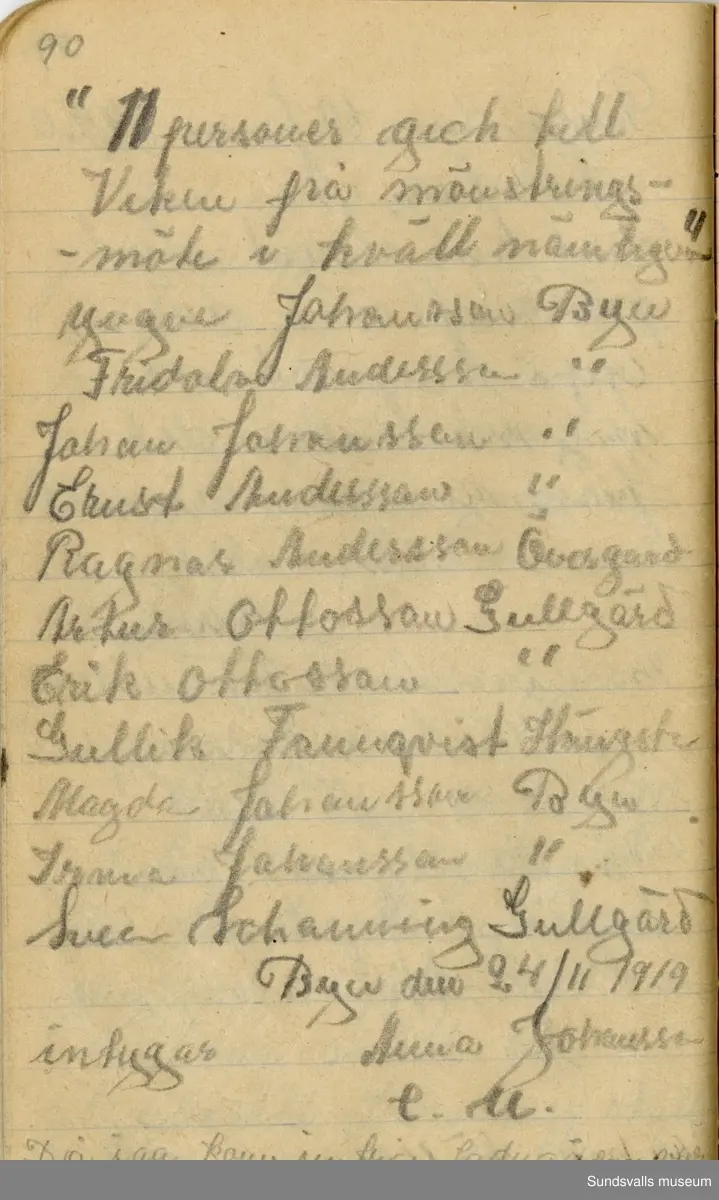 90
" 11 personer gich till
Viken frå mönstrings-
-möte i kväll nämligen"
Yngve Johansson Byn
Fridolv Andersson "
Johan Johansson "
Ernst Andersson "
Ragnar Andersson Övergård
Artur Ottosson Gullgård
Erik Ottosson "
Gullik Fannqvist
Magda Johansson Byn
Irma Johansson "
Sven Schanning Gullgård
Byn den 24/11 1919
intygar Anna Johansson
C. U.
Då jag kom in
Sundsvalls museum